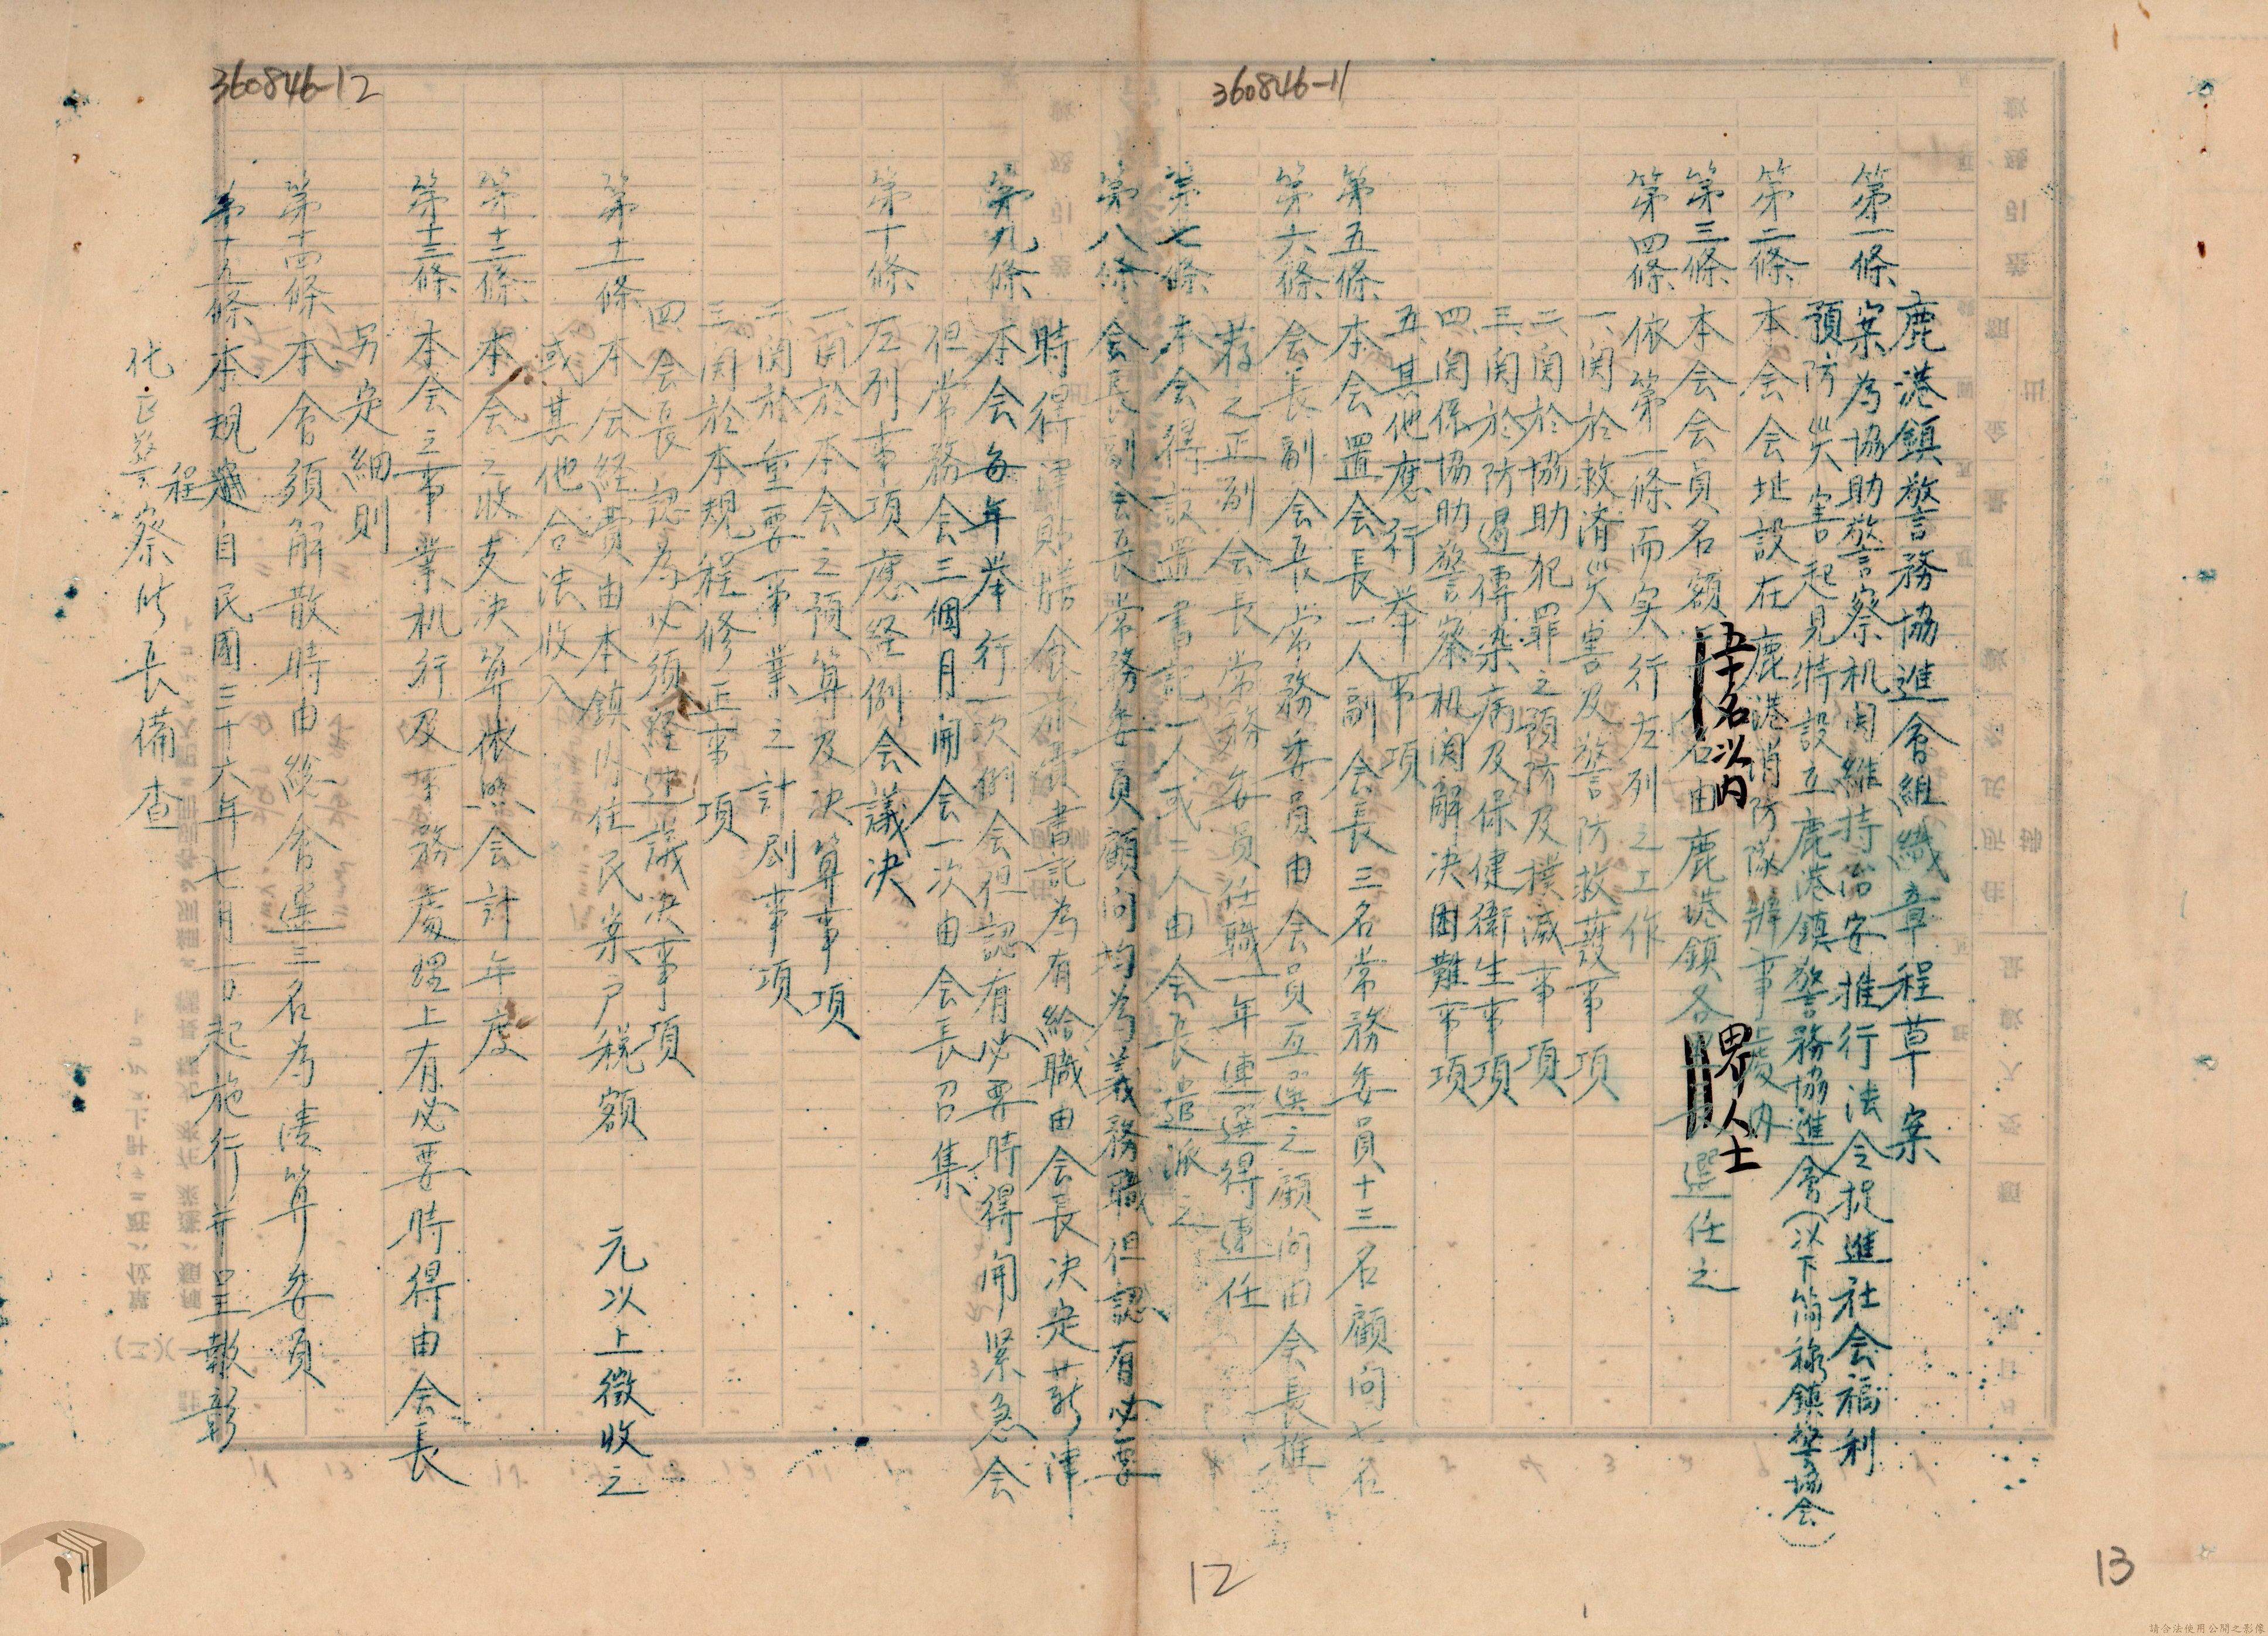 360846-11
鹿港鎮警務協進會組織章程草案
第一條 案為協助警察机関維持治安推行法令捉進社会福利
預防災害起見特設立鹿港鎮警務協進會(以下簡稱鎮警協会)
第二條 本会会址設在鹿港消防隊辦事處內
第三條 本会会員名額五十名以內由鹿港鎮各界人士選任之
第四條 依第一條而实行左列之工作
一、関於救済災害及警防救護事項
二、関於協助犯罪之預防及撲滅事項
三、関於防遏傳染病及保健衛生事項
四、関係協助警察机関解决困難事項
五、其他應行举事項
第五條 本会置会長一人副会長三名常務委員十三名顧問七名
第六條 会長副会長常務委員由会員互選之顧問由会長推
薦之正副会長常務委員任職一年連選得連任
第七條 本会得設置書記一人或二人由会長遣派之
第八條 会長副会長常務委員顧問均為義務職但認有必要
時得津貼膳食旅費書記為有給職由会長决定薪津
第九條 本会每年举行一次例会但認有必要時得開緊急会
但常務会三個月開会一次由会長召集
第十條 左列事項應経例会議决
一、関於本会之預算及决算事項
二、関於重要事業之計劃事項
三、関於本規程修正事項
四、会長認為必須経過議决事項
第十一條 本会経費由本鎮內住民案戶税額 元以上徵收之
或其他合法收入
第十二條 本会之收支决算依照会計年度
第十三條 本会之事業机行及事務處理上有必要時得由会長
另定細則
第十四條 本會須解散時由總會選三名為清算委員
第十五條 本規程自民國三十六年七月一日起施行并呈報彰
化區警察所長備查
360846-12
12
13
請合法使用公開之影像